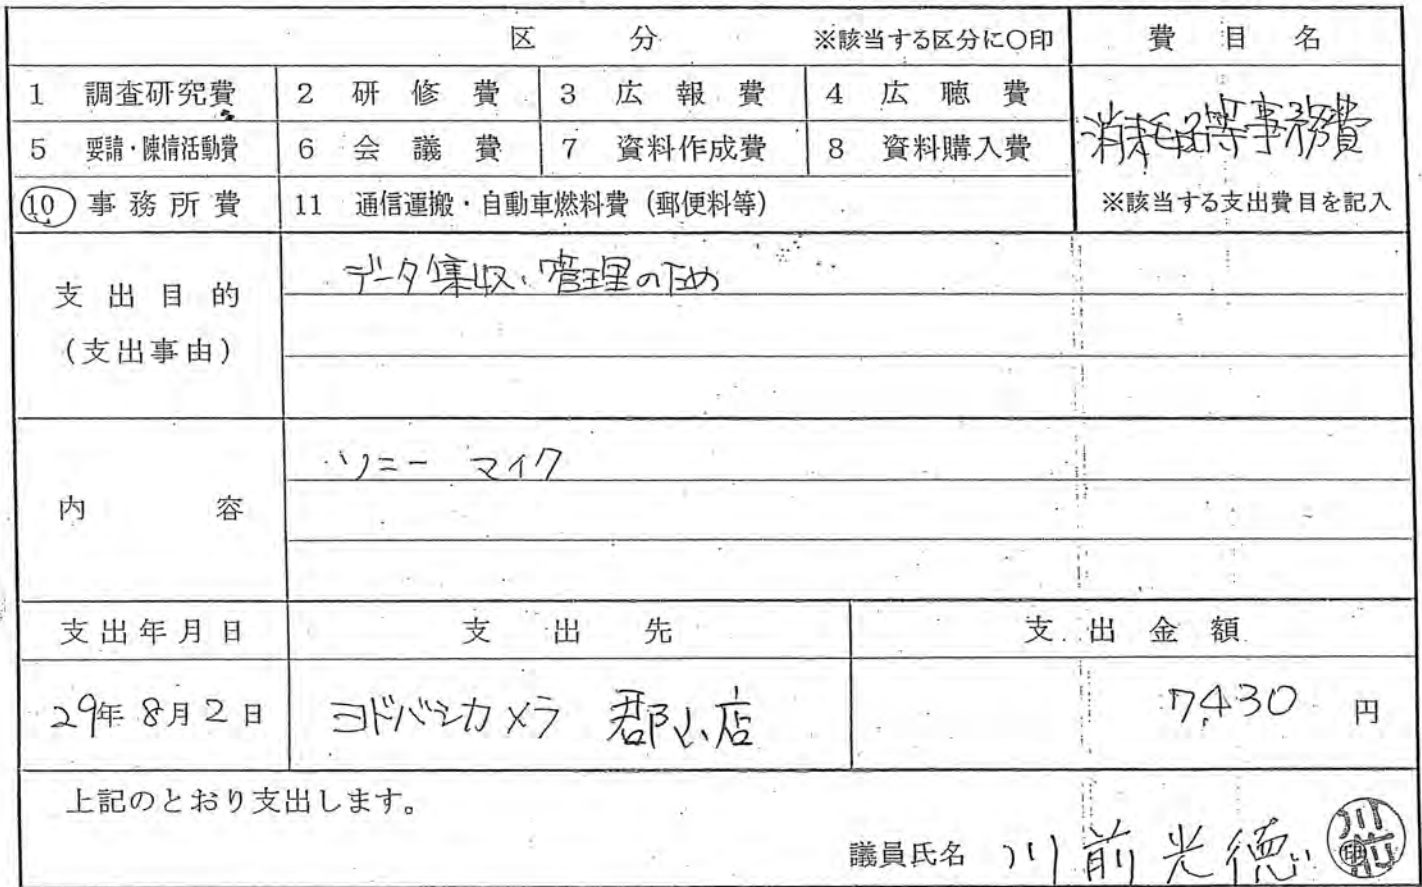 区分 ※該当する区分に○印 費目名
1 調査研究費 2 研修費 3 広報費 4 広聴費
消耗品等事務費
5 要請・陳情活動費 6 会議費 7 資料作成費 8 資料購入費
10 事務所費 11 通信運搬・自動車燃料費(郵便料等) ※該当する支出費目を記入
データ集収、管理のため
支出目的
(支出事由)
ソニー マイク
内容
支出年月日 支出先 支出金額
29年8月2日 ヨドバシカメラ 郡山店 7,430 円
上記のとおり支出します。
議員氏名 川前光徳 川前印